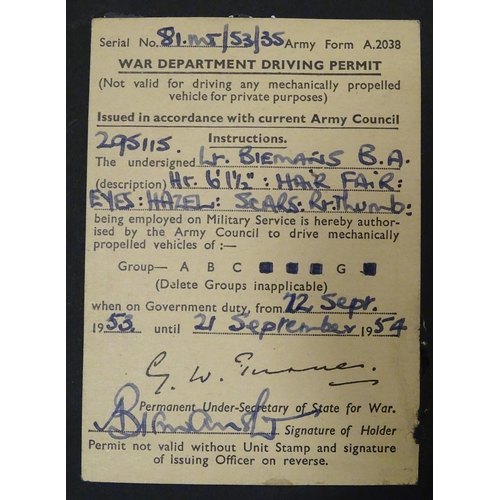 Serial No. 81.MT/53/35 Army Form A.2038
WAR DEPARTMENT DRIVING PERMIT
(Not valid for driving any mechanically propelled
vehicle for private purposes)
Issued in accordance with current Army Council
Instructions.
295115.
The undersigned Lt. BIEMANS B.A.
(description) Ht. 6'1½": HAIR FAIR:
EYES: HAZEL: SCARS: Rt. Thumb:
being employed on Military Service is hereby author-
ised by the Army Council to drive mechanically
propelled vehicles of :—
Group— A B C G
(Delete Groups inapplicable)
when on Government duty, from 22 Sept.
1953. until 21 September 1954
G. W. Turner.
Permanent Under-Secretary of State for War.
Biemans Lt
Signature of Holder
Permit not valid without Unit Stamp and signature
of Issuing Officer on reverse.